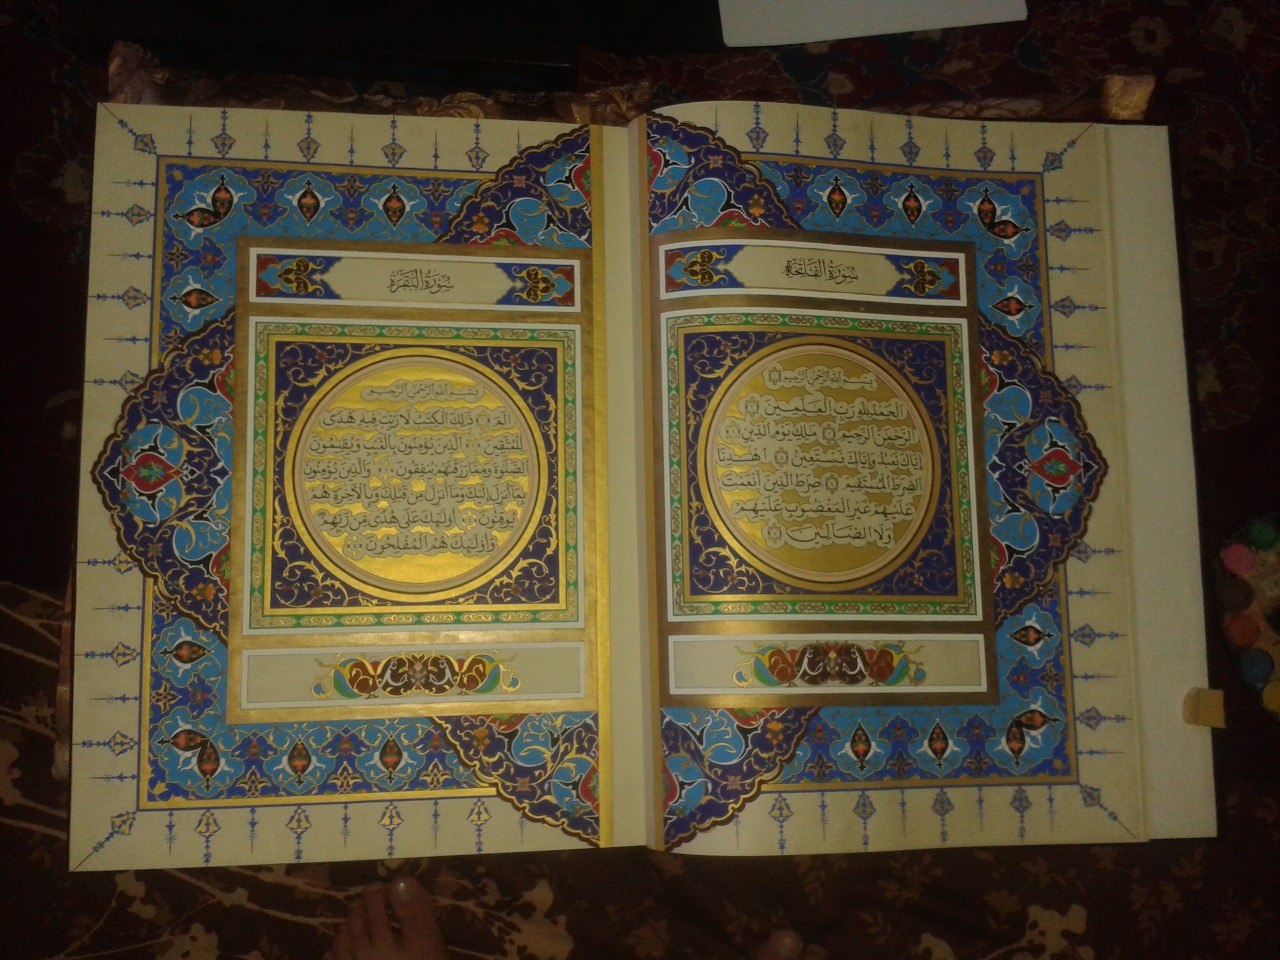 سُورَةُ الفَاتِحَةِ
بِسْمِ اللَّهِ الرَّحْمَٰنِ الرَّحِيمِ ۝
الْحَمْدُ لِلَّهِ رَبِّ الْعَٰلَمِينَ ۝
الرَّحْمَٰنِ الرَّحِيمِ ۝ مَٰلِكِ يَوْمِ الدِّينِ ۝
إِيَّاكَ نَعْبُدُ وَإِيَّاكَ نَسْتَعِينُ ۝ اهْدِنَا
الصِّرَٰطَ الْمُسْتَقِيمَ ۝ صِرَٰطَ الَّذِينَ أَنْعَمْتَ
عَلَيْهِمْ غَيْرِ الْمَغْضُوبِ عَلَيْهِمْ
وَلَا الضَّالِّينَ ۝
سُورَةُ البَقَرَةِ
بِسْمِ اللَّهِ الرَّحْمَٰنِ الرَّحِيمِ
الٓمٓ ۝ ذَٰلِكَ الْكِتَٰبُ لَا رَيْبَ فِيهِ هُدًى
لِّلْمُتَّقِينَ ۝ الَّذِينَ يُؤْمِنُونَ بِالْغَيْبِ وَيُقِيمُونَ
الصَّلَوٰةَ وَمِمَّا رَزَقْنَٰهُمْ يُنفِقُونَ ۝ وَالَّذِينَ يُؤْمِنُونَ
بِمَا أُنزِلَ إِلَيْكَ وَمَا أُنزِلَ مِن قَبْلِكَ وَبِالْآخِرَةِ هُمْ
يُوقِنُونَ ۝ أُولَٰئِكَ عَلَىٰ هُدًى مِّن رَّبِّهِمْ
وَأُولَٰئِكَ هُمُ الْمُفْلِحُونَ ۝